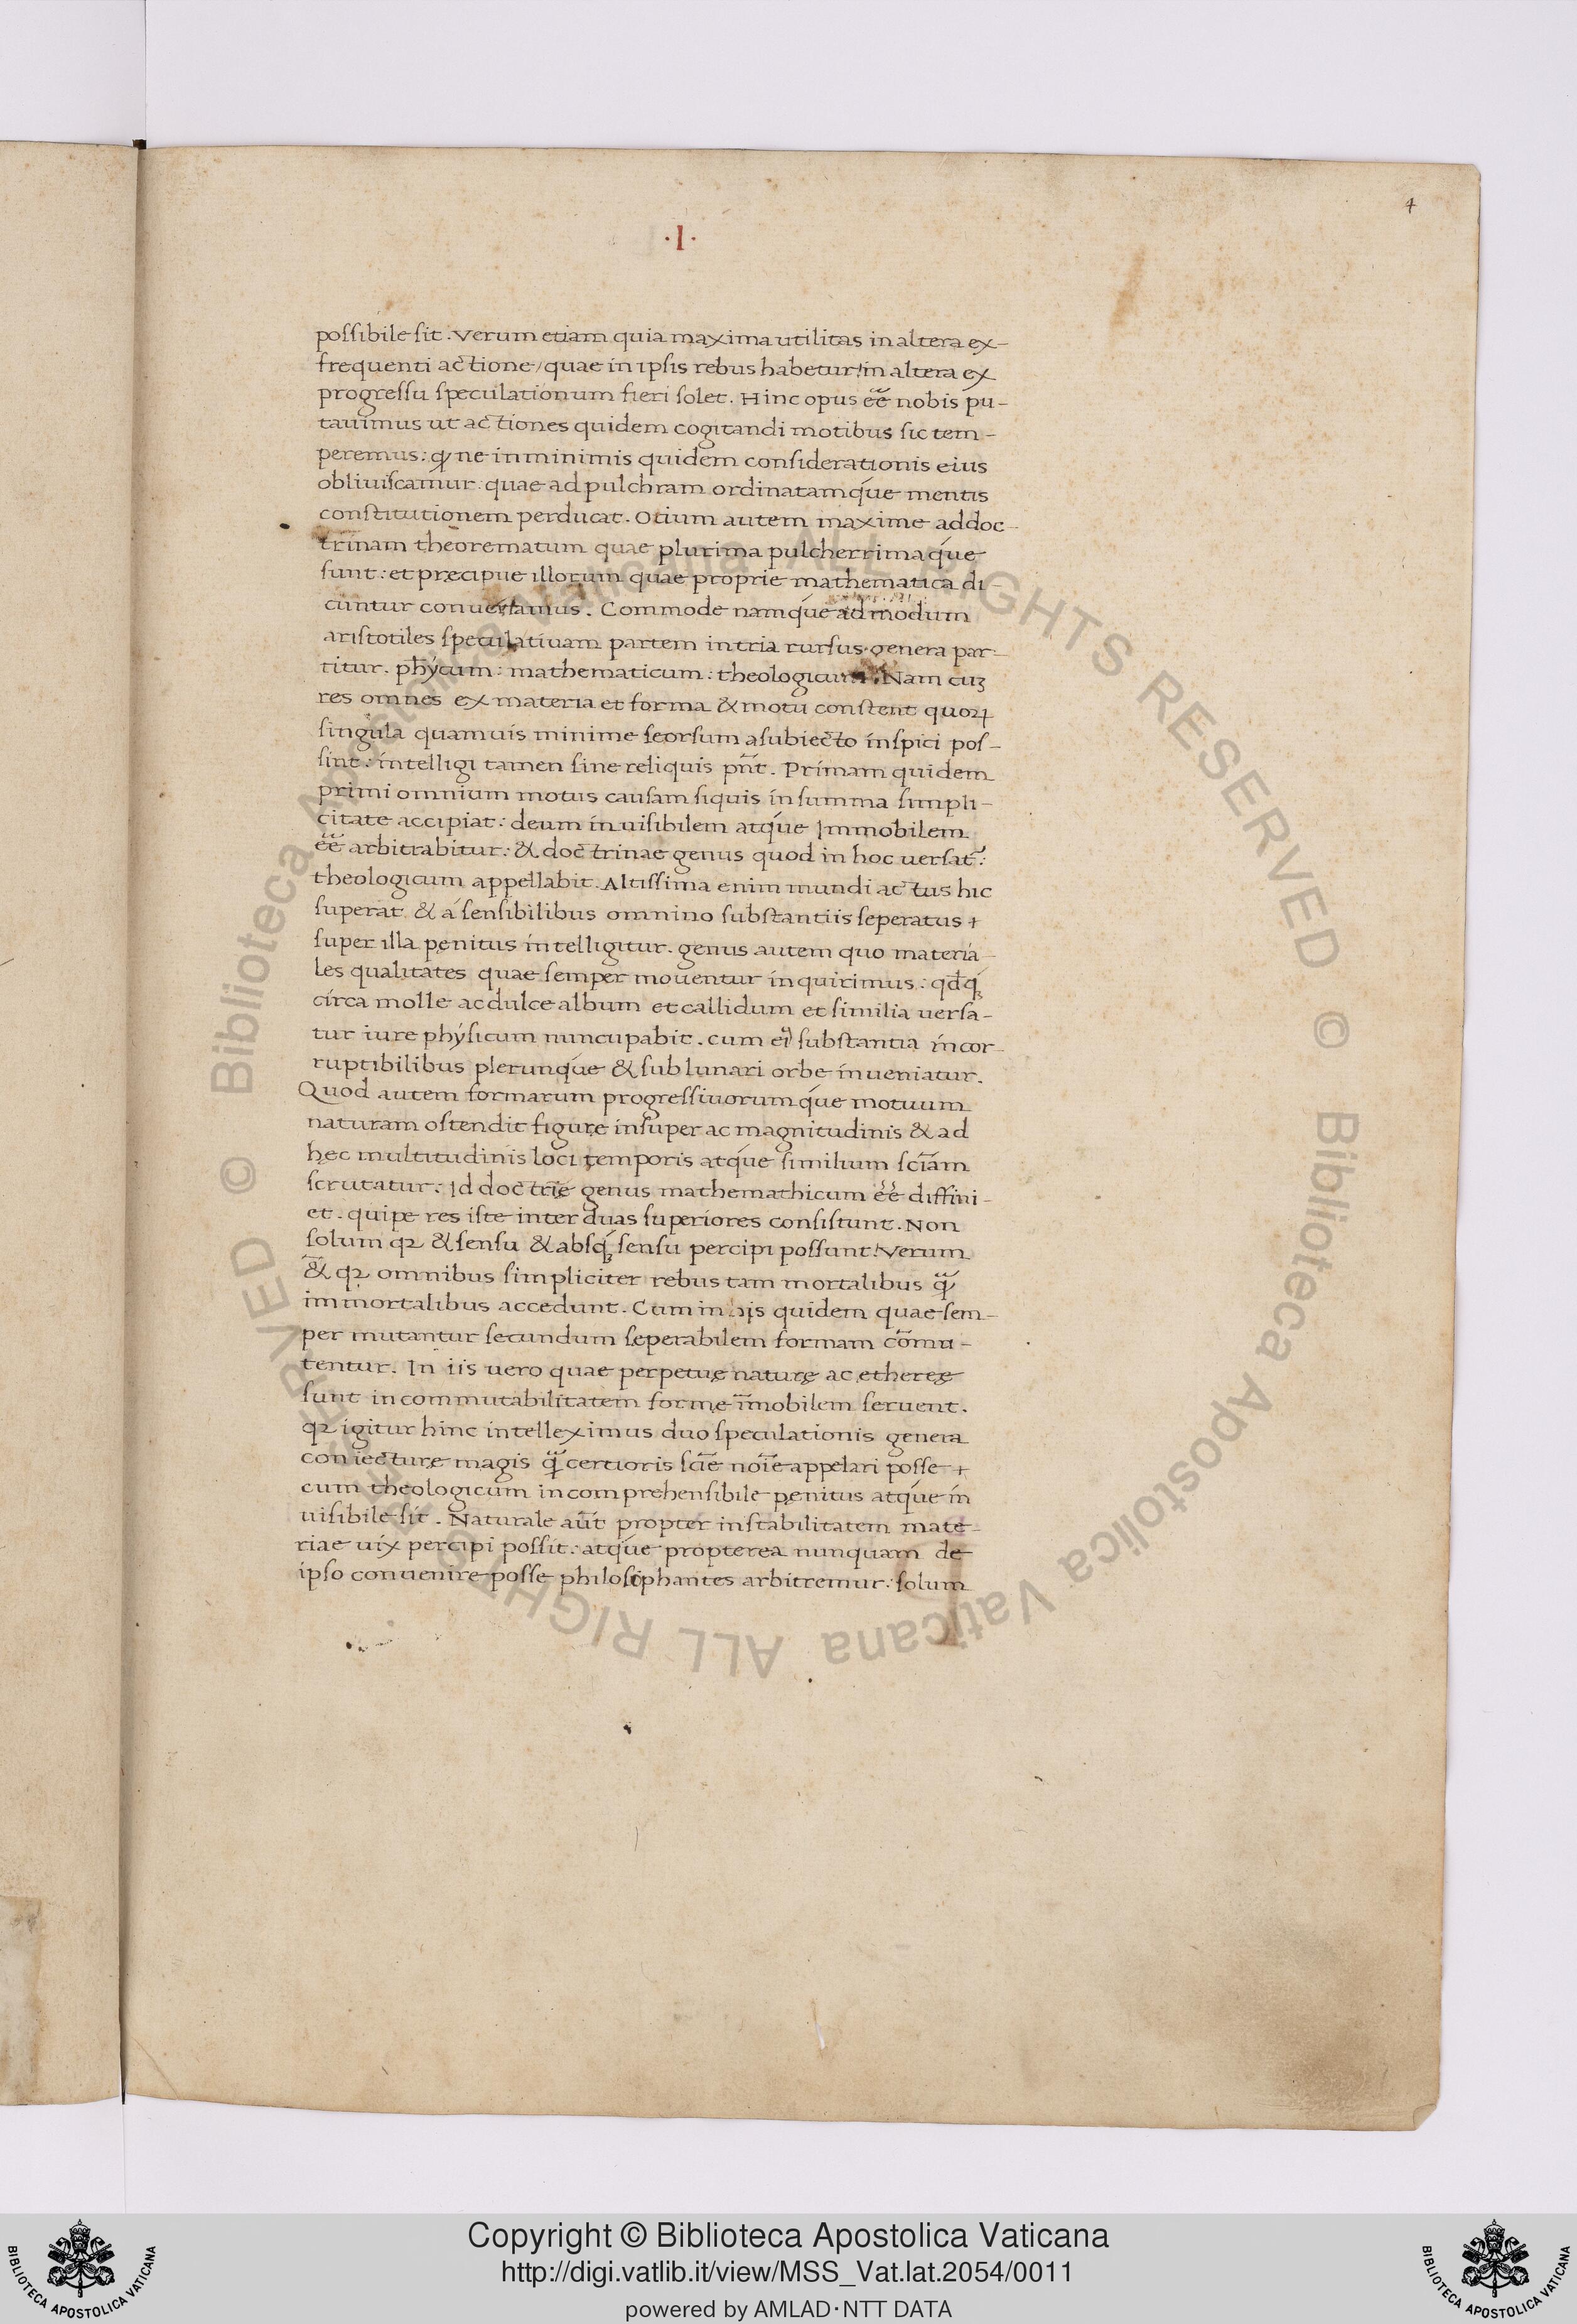 4
·I·
possibile sit. Verum etiam quia maxima utilitas in altera ex-
frequenti actione/quae in ipsis rebus habetur! in altera ex
progressu speculationum fieri solet. Hinc opus eẽ nobis pu-
tauimus ut actiones quidem cogitandi motibus sic tem-
peremus: ꝙ ne in minimis quidem considerationis eius
obliuiscamur: quae ad pulchram ordinatamque mentis
constitutionem perducat. Otium autem maxime ad doc-
trinam theorematum quae plurima pulcherrimaque
sunt: et pręcipue illorum quae proprie mathematica di-
cuntur conuertamus. Commode namque admodum
aristotiles speculatiuam partem in tria rursus genera par-
titur. phycum: mathematicum: theologicum. Nam cuꝫ
res omnes ex materia et forma & motu constent quoꝝ
singula quamuis minime seorsum a subiecto inspici pos-
sint: intelligi tamen sine reliquis pñt. Primam quidem
primi omnium motus causam siquis in summa simpli-
citate accipiat: deum inuisibilem atque Immobilem
eẽ arbitrabitur: & doctrinae genus quod in hoc uersat̃:
theologicum appellabit. Altissima enim mundi actus hic
superat & á sensibilibus omnino substantiis seperatus +
super illa penitus intelligitur. genus autem quo materia-
les qualitates quae semper mouentur inquirimus: qđqꝫ
circa molle ac dulce album et callidum et similia uersa-
tur iure physicum nuncupabit. cum ei substantia incor-
ruptibilibus plerunque & sub lunari orbe inueniatur.
Quod autem formarum progressiuorumque motuum
naturam ostendit figurę insuper ac magnitudinis & ad
hęc multitudinis loci temporis atque similium sciam̃
scrutatur: Id doctrĩę genus mathemathicum eẽ diffini-
et. quipe res iste inter duas superiores consistunt. Non
solum qꝛ & sensu & absqꝫ sensu percipi possunt! Verum
& qꝛ omnibus simpliciter rebus tam mortalibus qꝫ̃
immortalibus accedunt. Cum in his quidem quae sem-
per mutantur secundum seperabilem formam cõmu-
tentur. In iis uero quae perpetuę naturę ac ethereę
sunt incommutabilitatem formę ĩmobilem seruent.
qꝛ igitur hinc intelleximus duo speculationis genera
coniecturę magis qꝫ̃ certioris sciẽ noĩe appelari posse +
cum theologicum incomprehensibile penitus atque in
uisibile sit. Naturale aũt propter instabilitatem mate-
riae uix percipi possit: atque propterea nunquam de
ipso conuenire posse philosophantes arbitremur: solum
Copyright © Biblioteca Apostolica Vaticana
http://digi.vatlib.it/view/MSS_Vat.lat.2054/0011
powered by AMLAD·NTT DATA
BIBLIOTECA APOSTOLICA VATICANA
BIBLIOTECA APOSTOLICA VATICANA
© Biblioteca Apostolica Vaticana ALL RIGHTS RESERVED © Biblioteca Apostolica Vaticana ALL RIGHTS RESERVED